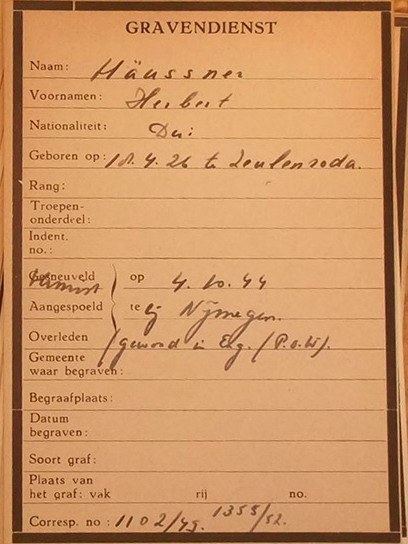 GRAVENDIENST
Naam: Häussner
Voornamen: Herbert
Nationaliteit: Dui
Geboren op: 18.4.26 te Zeulenroda.
Rang:
Troepen-
onderdeel:
Indent.
no.:
Gesneuveld op 4.10.44
Aangespoeld te bij Nijmegen.
Overleden (gewond in Eng. (P.o.W).
Gemeente
waar begraven:
Begraafplaats:
Datum
begraven:
Soort graf:
Plaats van
het graf: vak rij no.
Corresp. no: 1102/49. 1355/52.